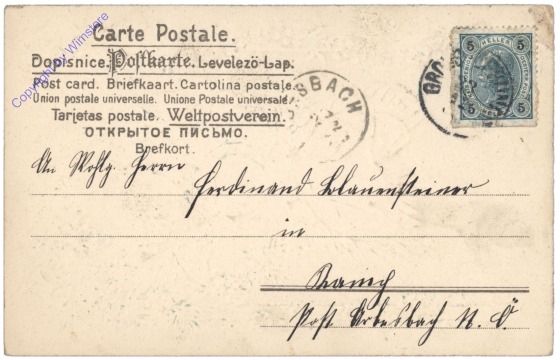 Copyright by Wimstore
Carte Postale.
Dopisnice. Postkarte. Levelező-Lap.
Post card. Briefkaart. Cartolina postale.
Union postale universelle. Unione Postale universale.
Tarjetas postale. Weltpostverein.
ОТКРЫТОЕ ПИСЬМО.
Brefkort.
5 5
HELLER
5 5
GRO
SBACH
An Wohlg. Herrn
Ferdinand Blauensteiner
in
Post Arbesbach N. Ö